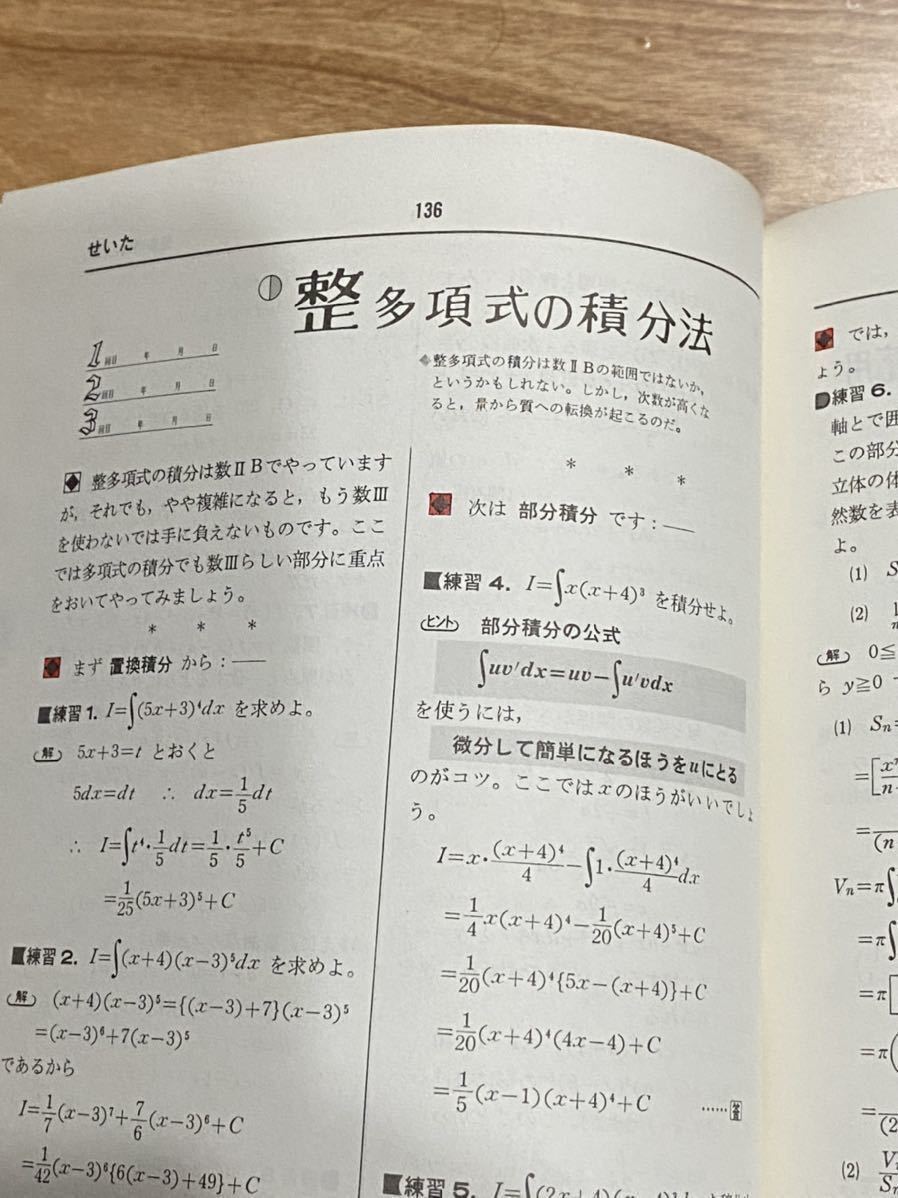 136
せいた
整多項式の積分法
1回目 年 月 日
2回目 年 月 日
3回目 年 月 日
◆整多項式の積分は数ⅡBの範囲ではないか，
というかもしれない。しかし，次数が高くな
ると，量から質への転換が起こるのだ。
整多項式の積分は数ⅡBでやっています
が，それでも，やや複雑になると，もう数Ⅲ
を使わないでは手に負えないものです。ここ
では多項式の積分でも数Ⅲらしい部分に重点
をおいてやってみましょう。
* * *
まず 置換積分 から：――
練習1. I=∫(5x+3)⁴dx を求めよ。
解 5x+3=t とおくと
5dx=dt ∴ dx=1/5 dt
∴ I=∫t⁴・1/5 dt=1/5・t⁵/5+C
=1/25(5x+3)⁵+C
練習2. I=∫(x+4)(x-3)⁵dx を求めよ。
解 (x+4)(x-3)⁵={(x-3)+7}(x-3)⁵
=(x-3)⁶+7(x-3)⁵
であるから
I=1/7(x-3)⁷+7/6(x-3)⁶+C
=1/42(x-3)⁶{6(x-3)+49}+C
* * *
次は 部分積分 です：――
練習4. I=∫x(x+4)³ を積分せよ。
ヒント 部分積分の公式
∫uv′dx=uv-∫u′vdx
を使うには，
微分して簡単になるほうをuにとる
のがコツ。ここではxのほうがいいでしょ
う。
I=x・(x+4)⁴/4-∫1・(x+4)⁴/4 dx
=1/4 x(x+4)⁴-1/20(x+4)⁵+C
=1/20(x+4)⁴{5x-(x+4)}+C
=1/20(x+4)⁴(4x-4)+C
=1/5(x-1)(x+4)⁴+C ……答
練習5.
では，
ょう。
練習6.
軸とで囲
この部分
立体の体
然数を表
よ。
(1) S
(2)
解 0≦
ら y≧0
(1) Sn=
=
Vn=π∫
=π∫
=π[
=π(
=
(2) Vn/Sn